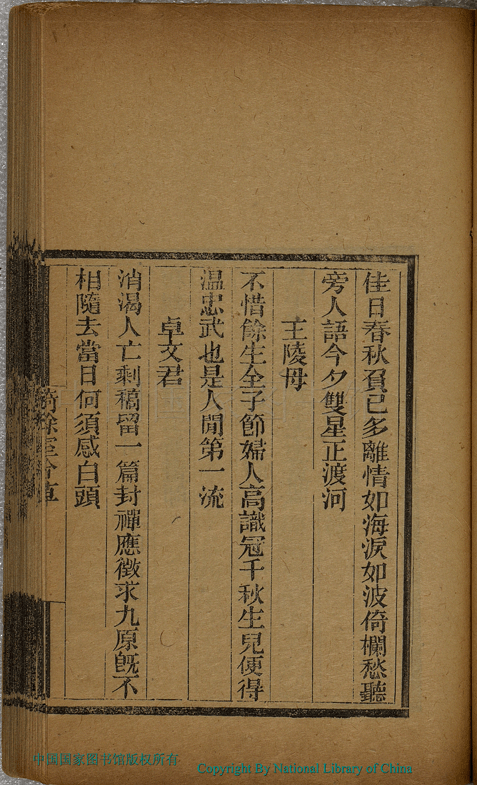 佳日春秋負已多離情如海淚如波倚欄愁聽
旁人語今夕雙星正渡河
王陵母
不惜餘生全子節婦人高識冠千秋生兒便得
温忠武也是人閒第一流
卓文君
消渴人亡剩稿留一篇封禪應徵求九原旣不
相隨去當日何須感白頭
中国国家图书馆版权所有
Copyright By National Library of China